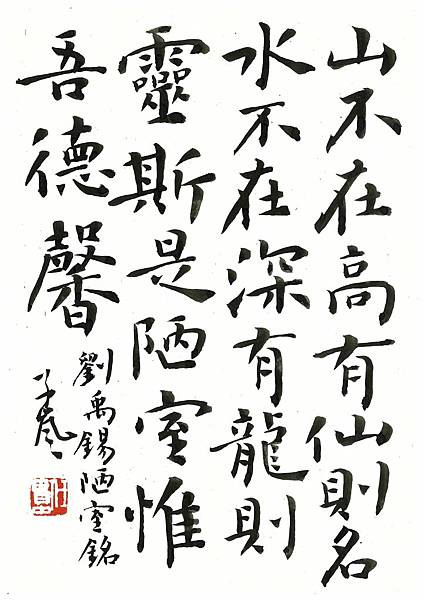 山不在高有仙則名
水不在深有龍則
靈斯是陋室惟
吾德馨
劉禹錫陋室銘